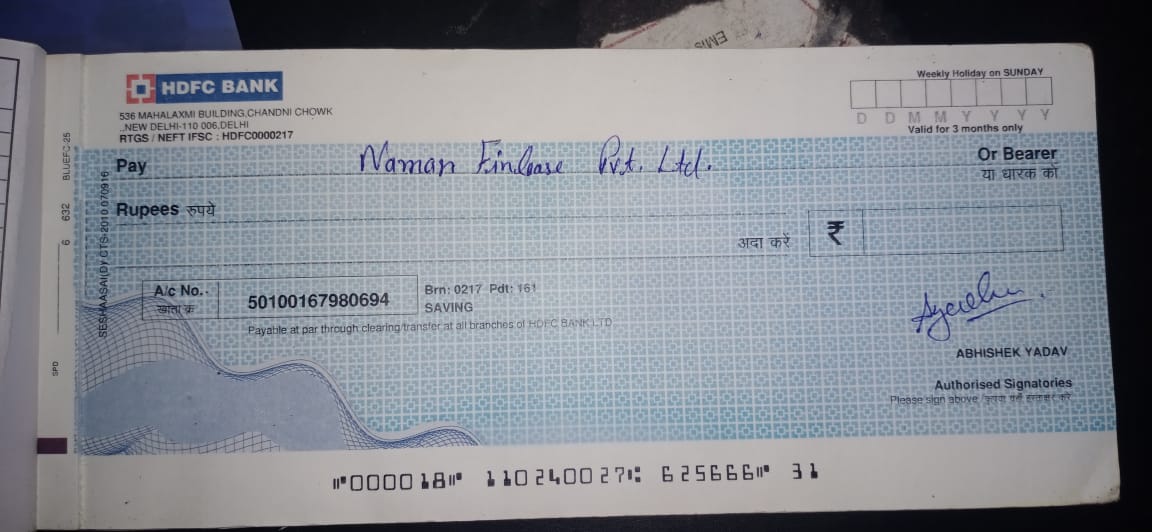 EMIS
HDFC BANK
536 MAHALAXMI BUILDING,CHANDNI CHOWK
.,NEW DELHI-110 006,DELHI
RTGS / NEFT IFSC : HDFC0000217
Weekly Holiday on SUNDAY
D D M M Y Y Y Y
Valid for 3 months only
Pay Naman Finlease Pvt. Ltd. Or Bearer
या धारक को
Rupees रुपये
अदा करें ₹
A/c No.
खाता क्र
50100167980694
Brn: 0217 Pdt: 161
SAVING
Payable at par through clearing/transfer at all branches of HDFC BANK LTD
ABHISHEK YADAV
Authorised Signatories
Please sign above / कृपया यहाँ हस्ताक्षर करें
SESHAASAI(D)/CTS-2010 070916
6 632 BLUEFC-25
SPD
⑈000018⑈ 110240027⑆ 625666⑈ 31